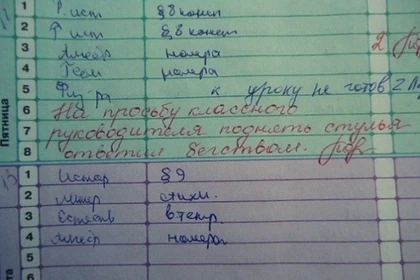 1 Р. ист §8 конец
2 Ф ист §8 конец
3 Алгебр номера 2
4 Геом номера
5 Физ-ра к уроку не готов 2
6 На просьбу классного
7 руководителя поднять стулья
8 ответил бегством.
Пятница
1 Истор §9
2 Литер стихи.
3 Естеств в тетр.
4 Алгебр номера
5
6